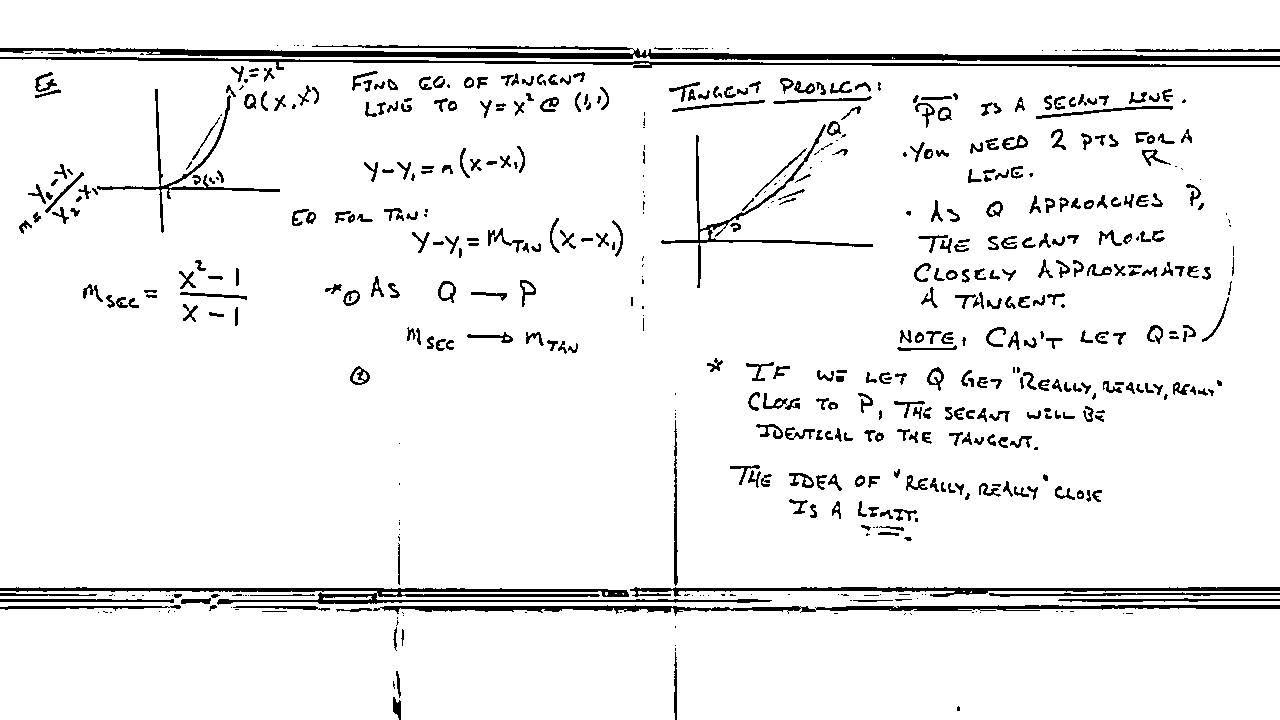 Ex
y=x²
Q(x,x²)
P(1,1)
1
m=y₂-y₁/x₂-x₁
m SEC = x²-1/x-1
FIND EQ. OF TANGENT
LINE TO y=x² @ (1,1)
y-y₁=m(x-x₁)
EQ FOR TAN:
y-y₁=m TAN (x-x₁)
* ① AS Q → P
m SEC → m TAN
②
TANGENT PROBLEM:
Q
P
"PQ" IS A SECANT LINE.
• YOU NEED 2 PTS FOR A
LINE.
• AS Q APPROACHES P,
THE SECANT MORE
CLOSELY APPROXIMATES
A TANGENT.
NOTE: CAN'T LET Q=P
* IF WE LET Q GET "REALLY, REALLY, REALLY"
CLOSE TO P, THE SECANT WILL BE
IDENTICAL TO THE TANGENT.
THE IDEA OF "REALLY, REALLY" CLOSE
IS A LIMIT.